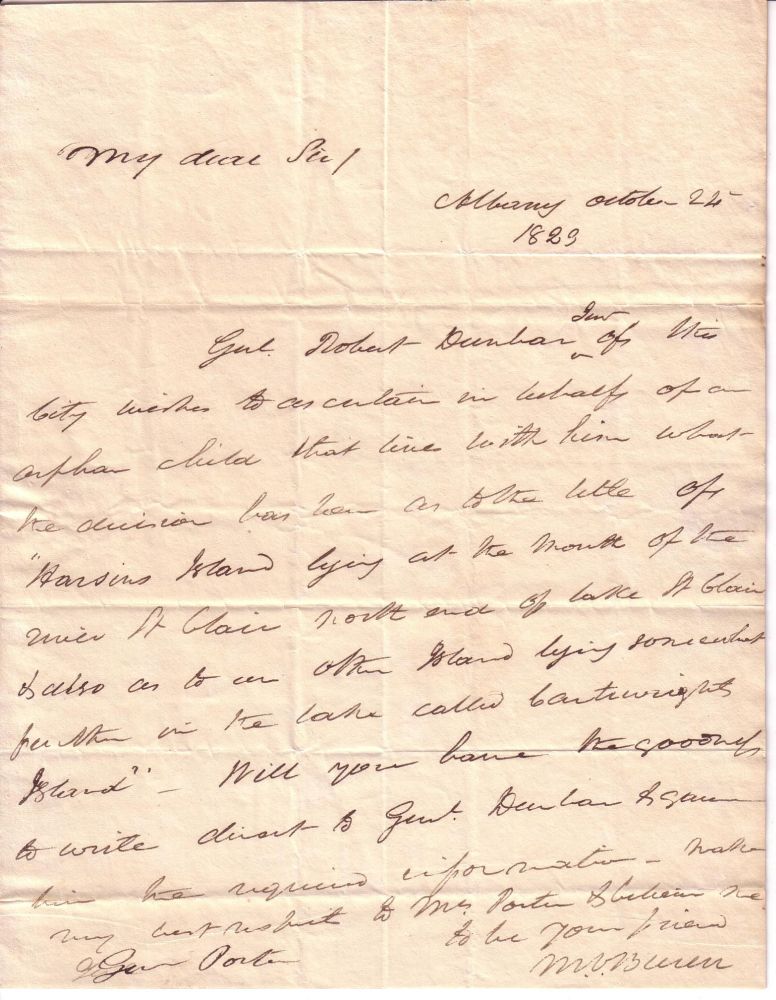 My dear Sir/
Albany October 25
1823
Genl. Robert Dunbar Junr of this
City wishes to ascertain in behalf of an
orphan child that lives with him what
the decision has been as to the title of
"Harsins Island lying at the Mouth of the
river St Clair north end of lake St Clair
& also as to an other Island lying somewhat
further in the lake called Cartwrights
Island" – Will you have the goodness
to write direct to Genl. Dunbar &
him the required information – make
my best respects to Mrs Porter & believe me
to be your friend
Genl Porter
M.V.Buren